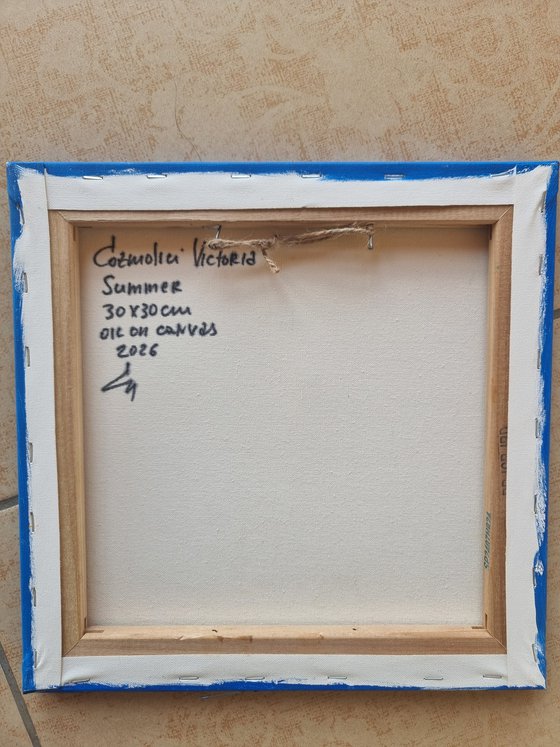 Cozmolici Victoria
Summer
30x30cm
oil on canvas
2026